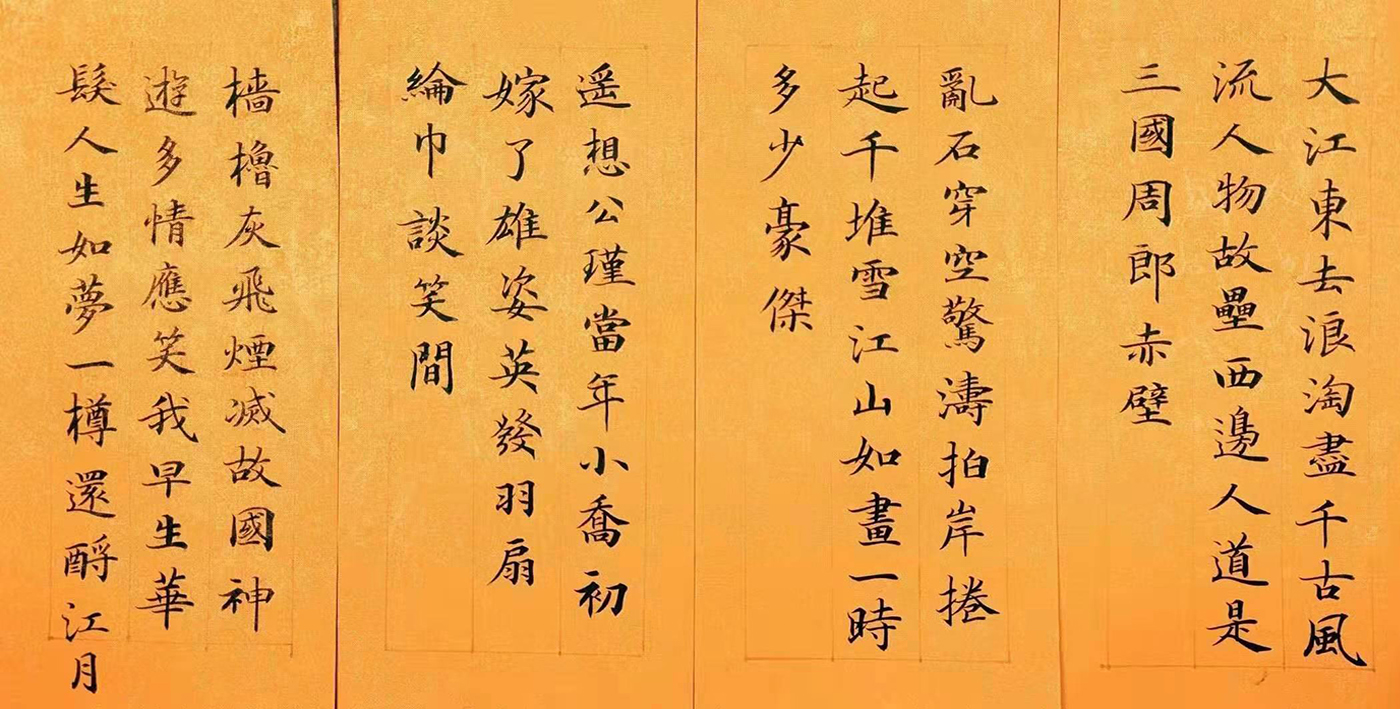 大江東去浪淘盡千古風
流人物故壘西邊人道是
三國周郎赤壁
亂石穿空驚濤拍岸捲
起千堆雪江山如畫一時
多少豪傑
遥想公瑾當年小喬初
嫁了雄姿英發羽扇
綸巾談笑間
檣櫓灰飛煙滅故國神
遊多情應笑我早生華
髮人生如夢一樽還酹江月